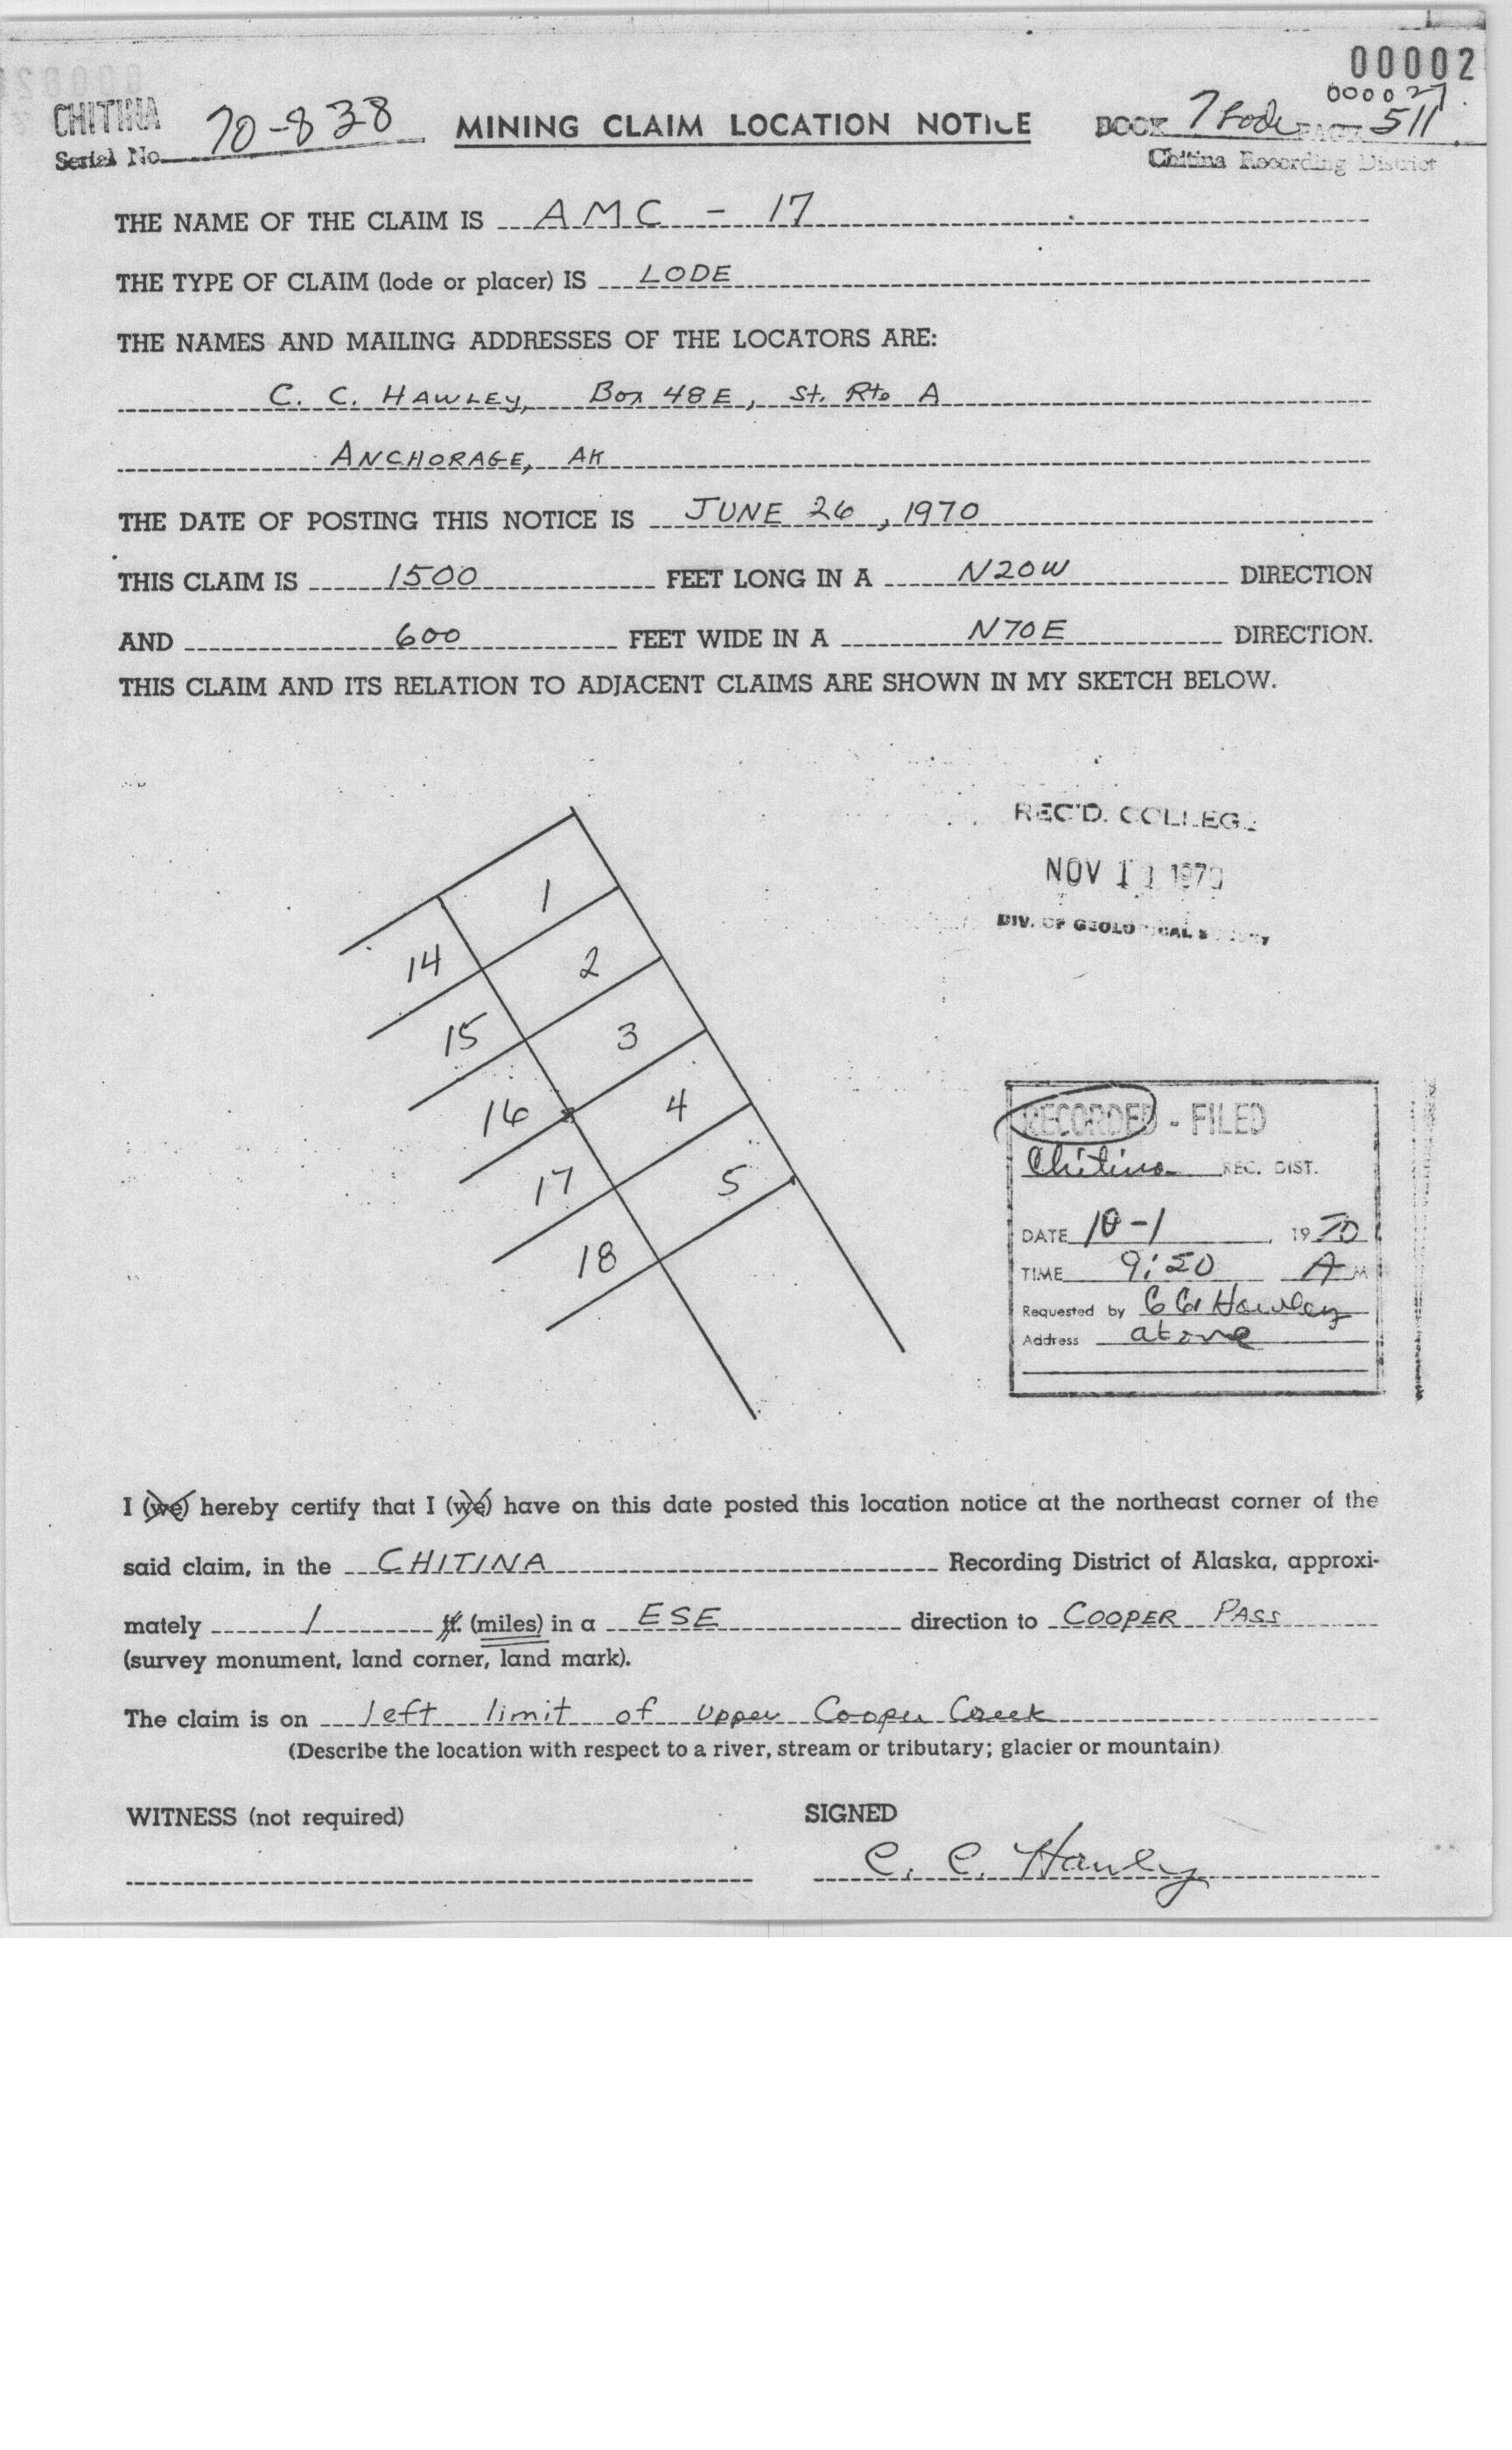 00002
000027
CHITINA
Serial No. 70-838 MINING CLAIM LOCATION NOTICE BOOK 7 Lode PAGE 511
Chitina Recording District
THE NAME OF THE CLAIM IS AMC - 17
THE TYPE OF CLAIM (lode or placer) IS LODE
THE NAMES AND MAILING ADDRESSES OF THE LOCATORS ARE:
C. C. HAWLEY, Box 48E, St. Rte A
ANCHORAGE, AK
THE DATE OF POSTING THIS NOTICE IS JUNE 26, 1970
THIS CLAIM IS 1500 FEET LONG IN A N20W DIRECTION
AND 600 FEET WIDE IN A N70E DIRECTION.
THIS CLAIM AND ITS RELATION TO ADJACENT CLAIMS ARE SHOWN IN MY SKETCH BELOW.
REC'D. COLLEGE
NOV 1 1970
DIV. OF GEOLOGICAL SURVEY
1
14
2
15
3
16
4
17
5
18
RECORDED - FILED
Chitina REC. DIST.
DATE 10-1, 1970
TIME 9:50 A M
Requested by CC Hawley
Address above
I (we) hereby certify that I (we) have on this date posted this location notice at the northeast corner of the
said claim, in the CHITINA Recording District of Alaska, approxi-
mately 1 ft. (miles) in a ESE direction to COOPER PASS
(survey monument, land corner, land mark).
The claim is on left limit of upper Cooper Creek
(Describe the location with respect to a river, stream or tributary; glacier or mountain)
WITNESS (not required) SIGNED
C. C. Hawley